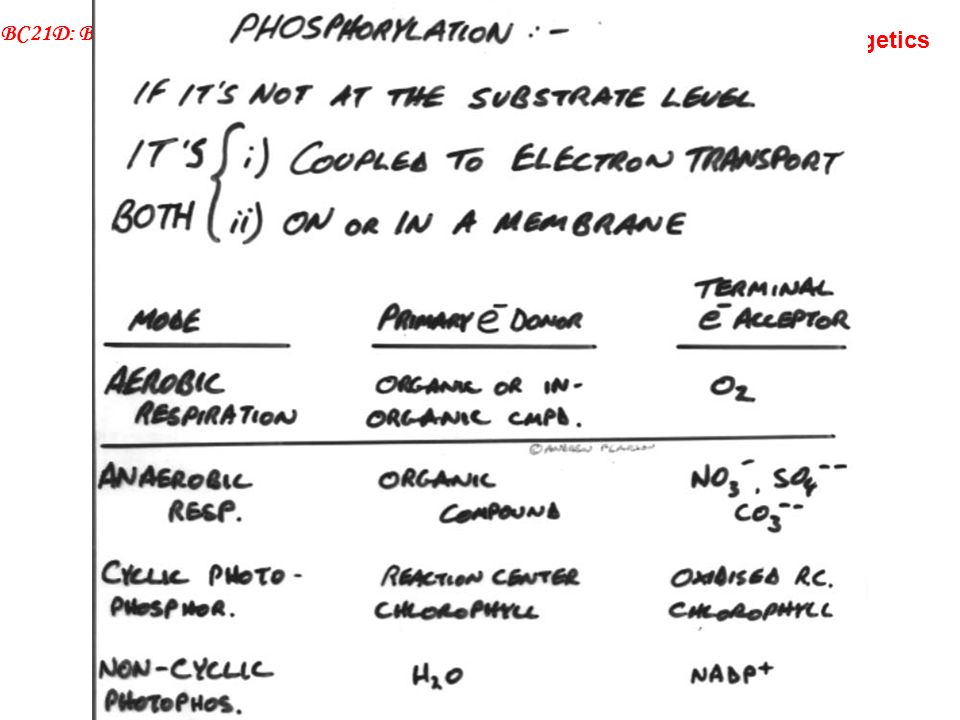 BC21D: B
getics
PHOSPHORYLATION :-
IF IT'S NOT AT THE SUBSTRATE LEVEL
IT'S { i) COUPLED TO ELECTRON TRANSPORT
BOTH { ii) ON OR IN A MEMBRANE
MODE PRIMARY e⁻ DONOR TERMINAL e⁻ ACCEPTOR
AEROBIC ORGANIC OR IN- O₂
RESPIRATION ORGANIC CMPD.
© ANDREW PEARSON
ANAEROBIC ORGANIC NO₃⁻, SO₄⁻⁻
RESP. COMPOUND CO₃⁻⁻
CYCLIC PHOTO- REACTION CENTER OXIDISED R.C.
PHOSPHOR. CHLOROPHYLL CHLOROPHYLL
NON-CYCLIC H₂O NADP⁺
PHOTOPHOS.